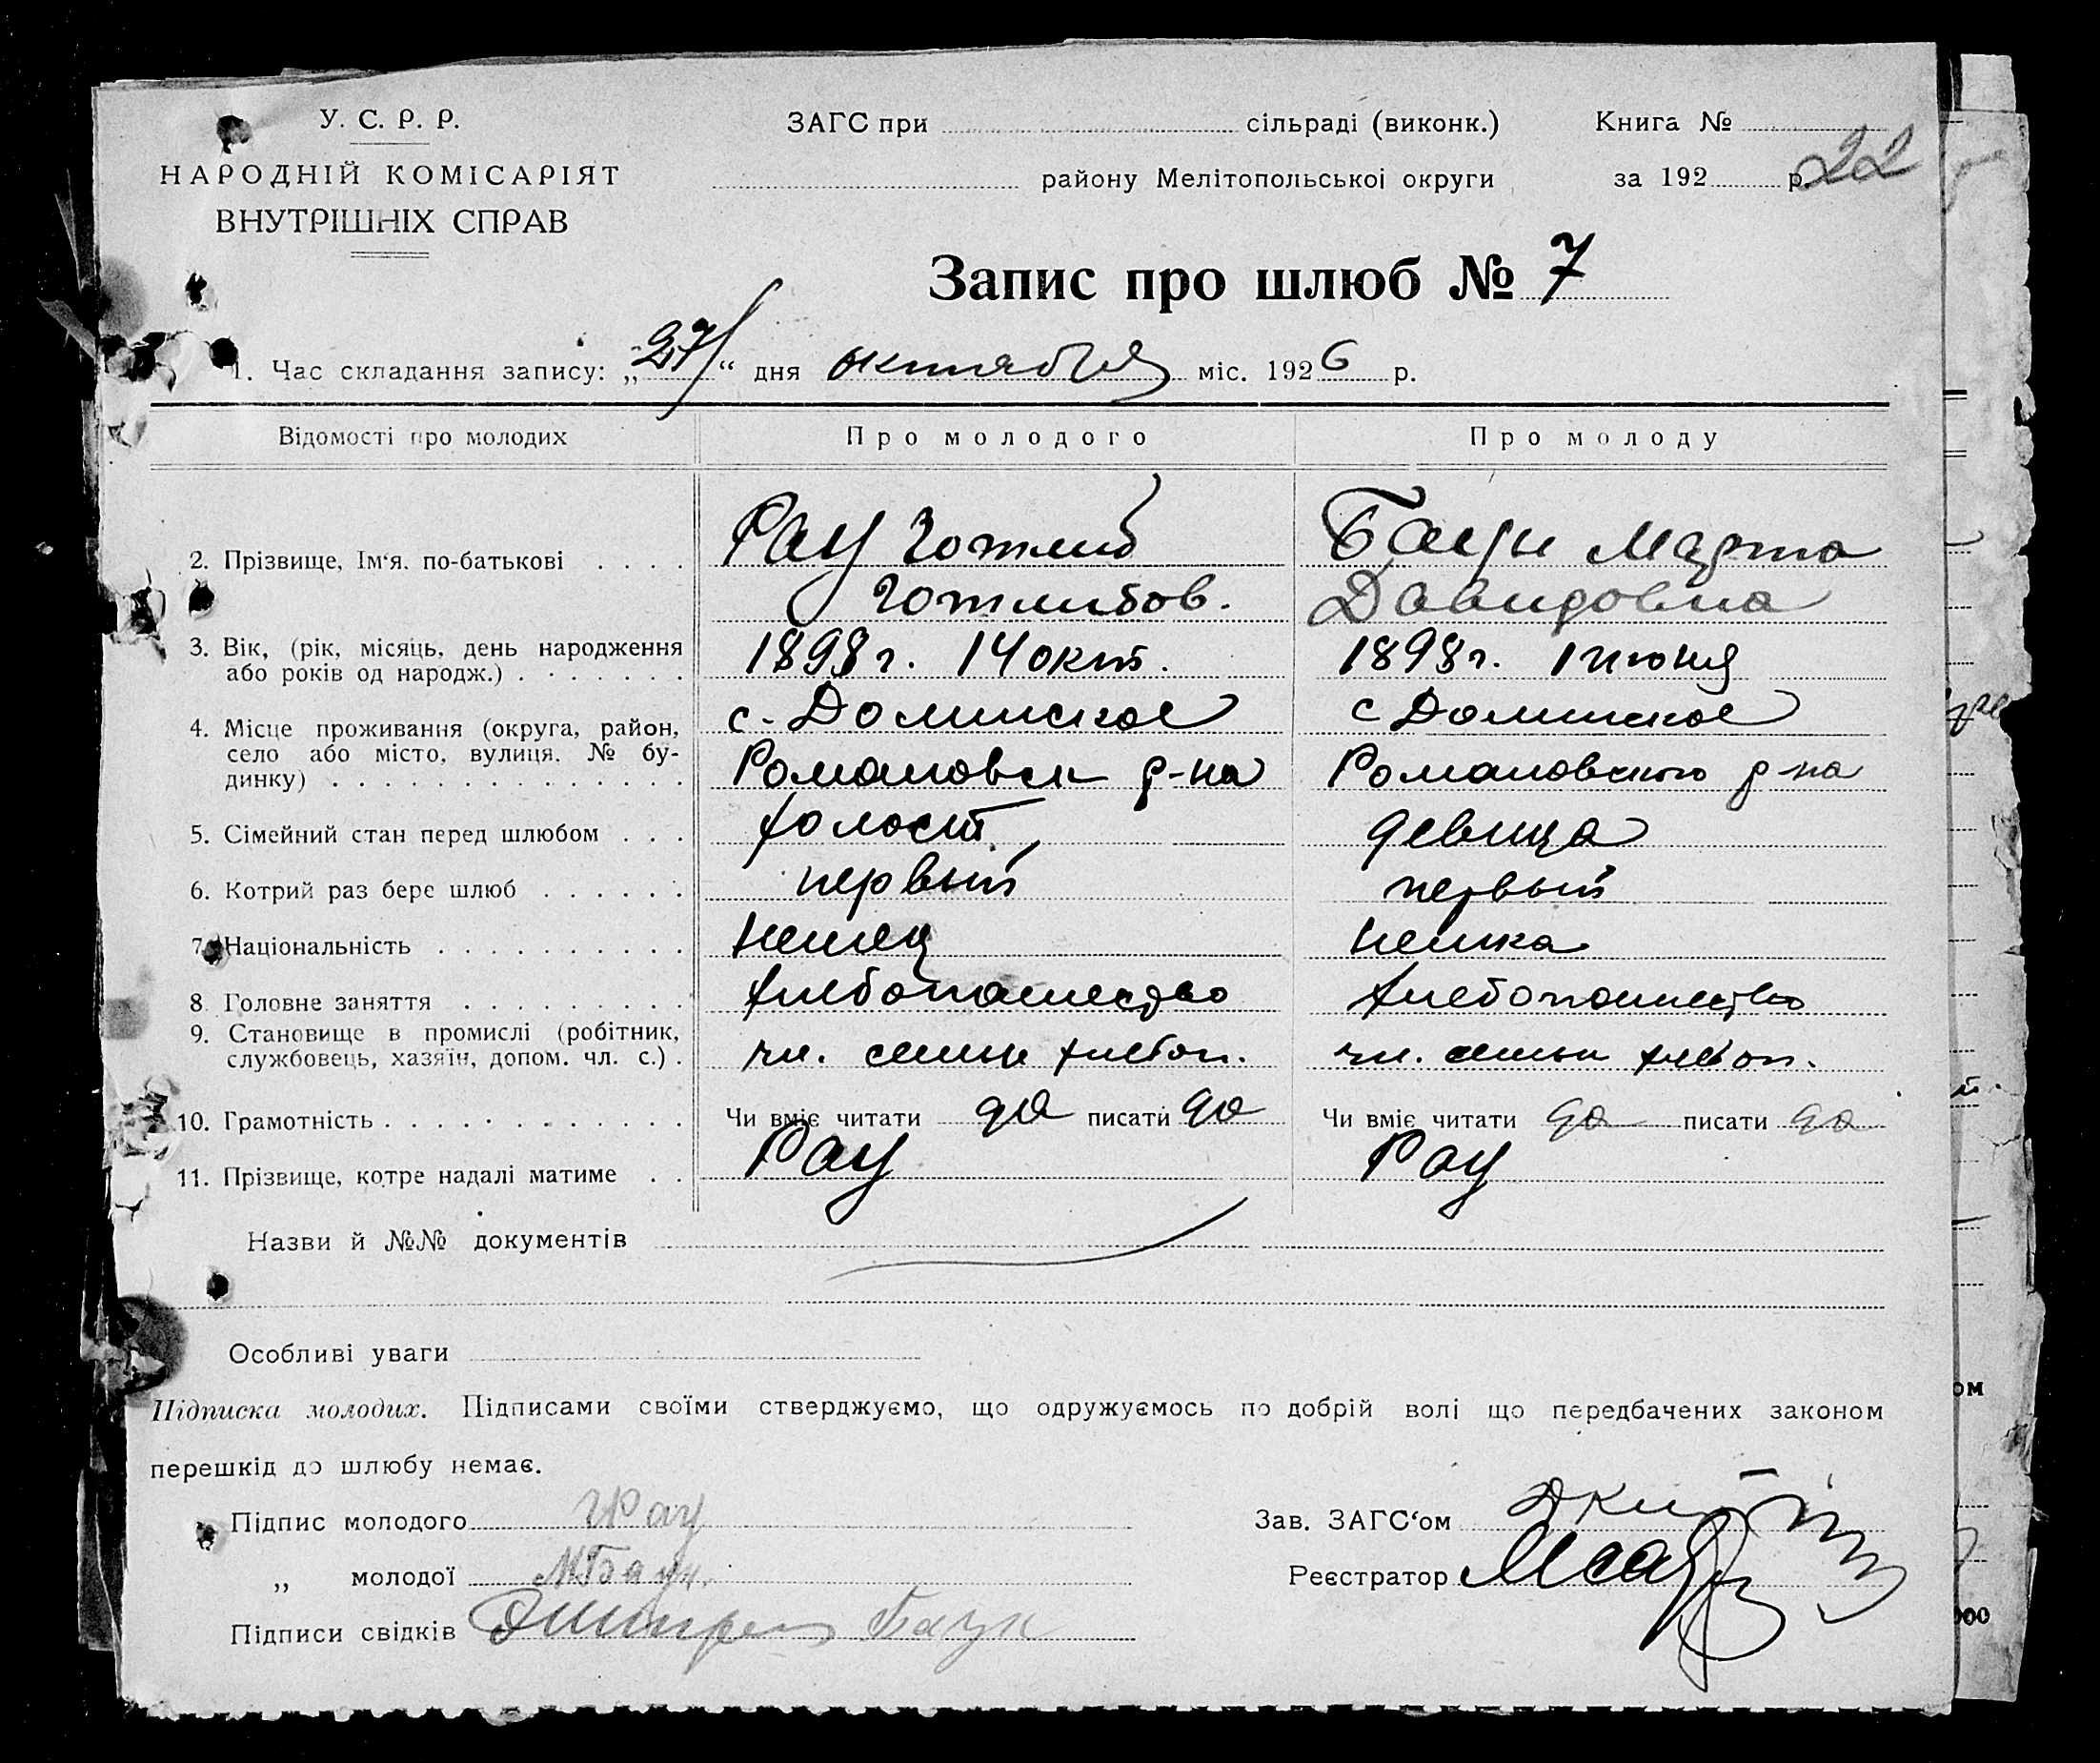 У. С. Р. Р.
НАРОДНІЙ КОМІСАРІЯТ
ВНУТРІШНІХ СПРАВ
ЗАГС при сільраді (виконк.)
району Мелітопольської округи
Книга №
за 192 р. 22
Запис про шлюб № 7
1. Час складання запису: „27“ дня октября міс. 1926 р.
Відомості про молодих Про молодого Про молоду
2. Прізвище, Ім‘я, по-батькові Рау Готлиб Баун Марта
Готлибов. Давидовна
3. Вік, (рік, місяць, день народження або років од народж.) 1898 г. 14 окт. 1898 г. 1 июня
4. Місце проживання (округа, район, с. Долинское с Долинское
село або місто, вулиця, № бу- Романовск р-на Романовского р-на
динку)
5. Сімейний стан перед шлюбом холост девица
6. Котрий раз бере шлюб первый первый
7. Національність немец немка
8. Головне заняття хлебопашество хлебопашество
9. Становище в промислі (робітник,
службовець, хазяїн, допом. чл. с.) чл. семьи хлебоп. чл. семьи хлебоп.
10. Грамотність Чи вміє читати да писати да Чи вміє читати да писати да
11. Прізвище, котре надалі матиме Рау Рау
Назви й №№ документів
Особливі уваги
Підписка молодих. Підписами своїми стверджуємо, що одружуємось по добрій волі що передбачених законом
перешкід до шлюбу немає.
Підпис молодого Г Рау
„ молодої М Баун.
Підписи свідків Баун
Зав. ЗАГС‘ом
Реєстратор